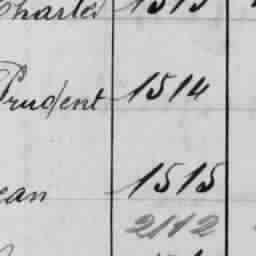 Charles 1513
Prudent 1514
ean 1515
2112